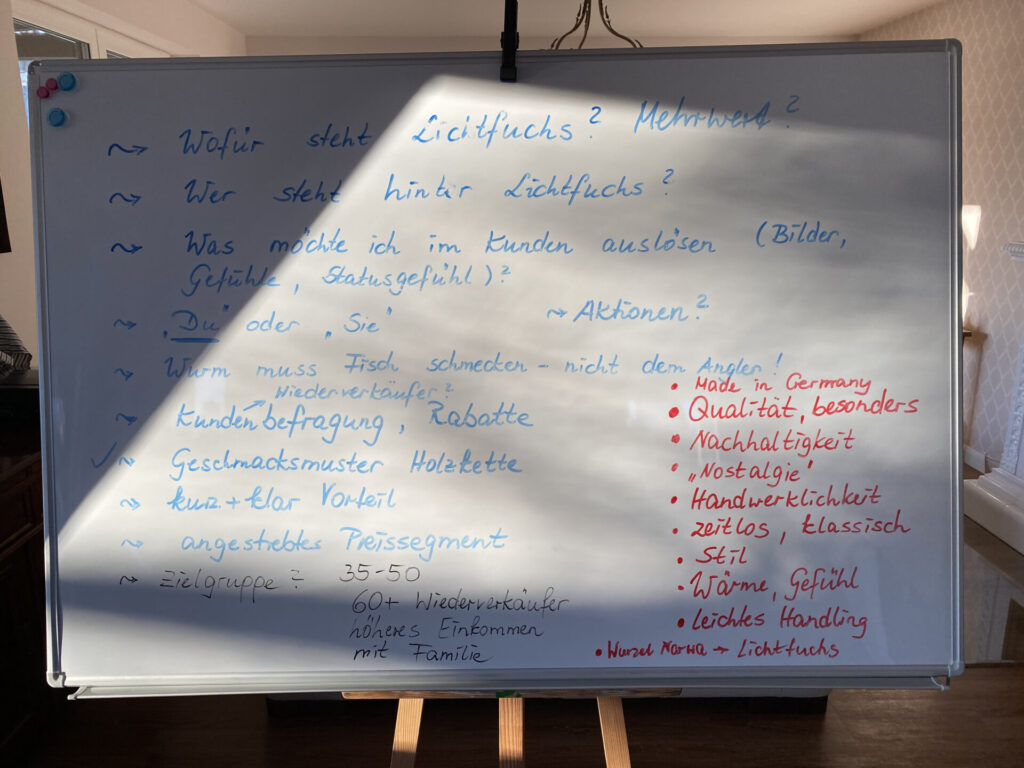 ↝ Wofür steht Lichtfuchs? Mehrwert?
↝ Wer steht hinter Lichtfuchs?
↝ Was möchte ich im Kunden auslösen (Bilder,
Gefühle, Statusgefühl)?
↝ „Du" oder „Sie" ↝ Aktionen?
↝ Wurm muss Fisch schmecken – nicht dem Angler!
Wiederverkäufer?
↝ Kundenbefragung, Rabatte
✓ ↝ Geschmacksmuster Holzkette
↝ kurz + klar Vorteil
↝ angestrebtes Preissegment
↝ Zielgruppe? 35-50
60+ Wiederverkäufer
höheres Einkommen
mit Familie
• Made in Germany
• Qualität, besonders
• Nachhaltigkeit
• „Nostalgie"
• Handwerklichkeit
• zeitlos, klassisch
• Stil
• Wärme, Gefühl
• leichtes Handling
• Wurzel Narwa → Lichtfuchs